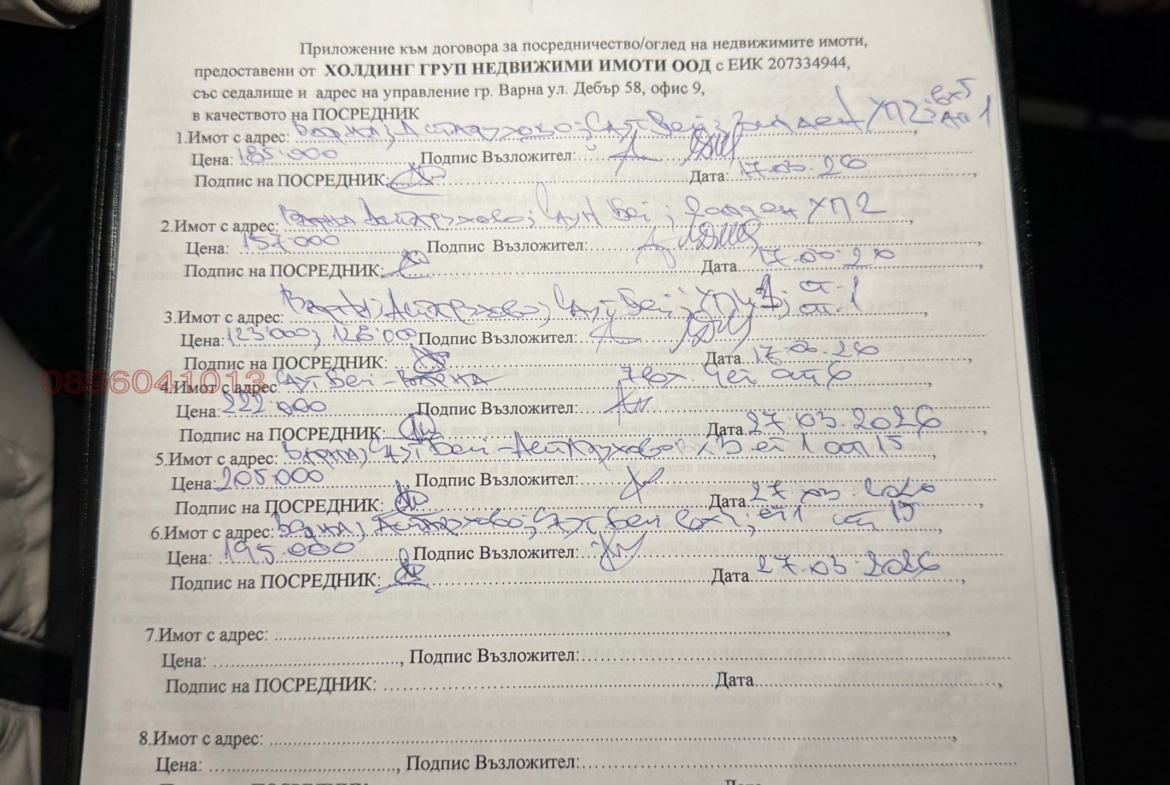 Приложение към договора за посредничество/оглед на недвижимите имоти,
предоставени от ХОЛДИНГ ГРУП НЕДВИЖИМИ ИМОТИ ООД с ЕИК 207334944,
със седалище и адрес на управление гр. Варна ул. Дебър 58, офис 9,
в качеството на ПОСРЕДНИК
1.Имот с адрес: Варна, Аспарухово, ап 1
Цена: 185 000 Подпис Възложител:
Подпис на ПОСРЕДНИК: Дата: 17.03.26
2.Имот с адрес: Варна Аспарухово,
Цена: 157 000 Подпис Възложител:
Подпис на ПОСРЕДНИК: Дата
3.Имот с адрес: Варна, Аспарухово,
Цена: 123 000, 128 000 Подпис Възложител:
Подпис на ПОСРЕДНИК: Дата 17.03.26
0896041013
4.Имот с адрес: Варна ап 6
Цена: 222 000 Подпис Възложител:
Подпис на ПОСРЕДНИК: Дата 27.03.2026
5.Имот с адрес: Варна, Аспарухово ап 15
Цена: 205 000 Подпис Възложител:
Подпис на ПОСРЕДНИК: Дата 27.03.2026
6.Имот с адрес: Варна, Аспарухово, ап 15
Цена: 195.000 Подпис Възложител:
Подпис на ПОСРЕДНИК: Дата 27.03.2026
7.Имот с адрес:
Цена: , Подпис Възложител:
Подпис на ПОСРЕДНИК: Дата
8.Имот с адрес:
Цена: , Подпис Възложител: